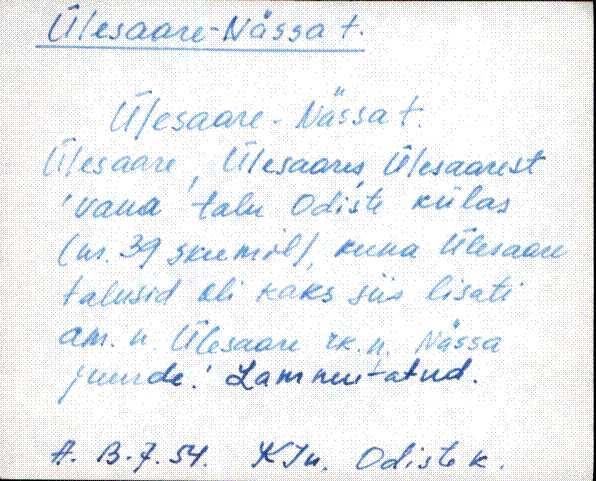 Ülesaare-Nässa t.
Ülesaare-Nässa t.
Ülesaare, Ülesaares, Ülesaarest
'vana talu Odiste külas
(nr. 39 skeemil), kuna Ülesaare
talusid oli kaks siis lisati
am. n. Ülesaare rk. n. Nässa
juurde.' Lammutatud.
A. B. 7. 54. KJn. Odiste k.